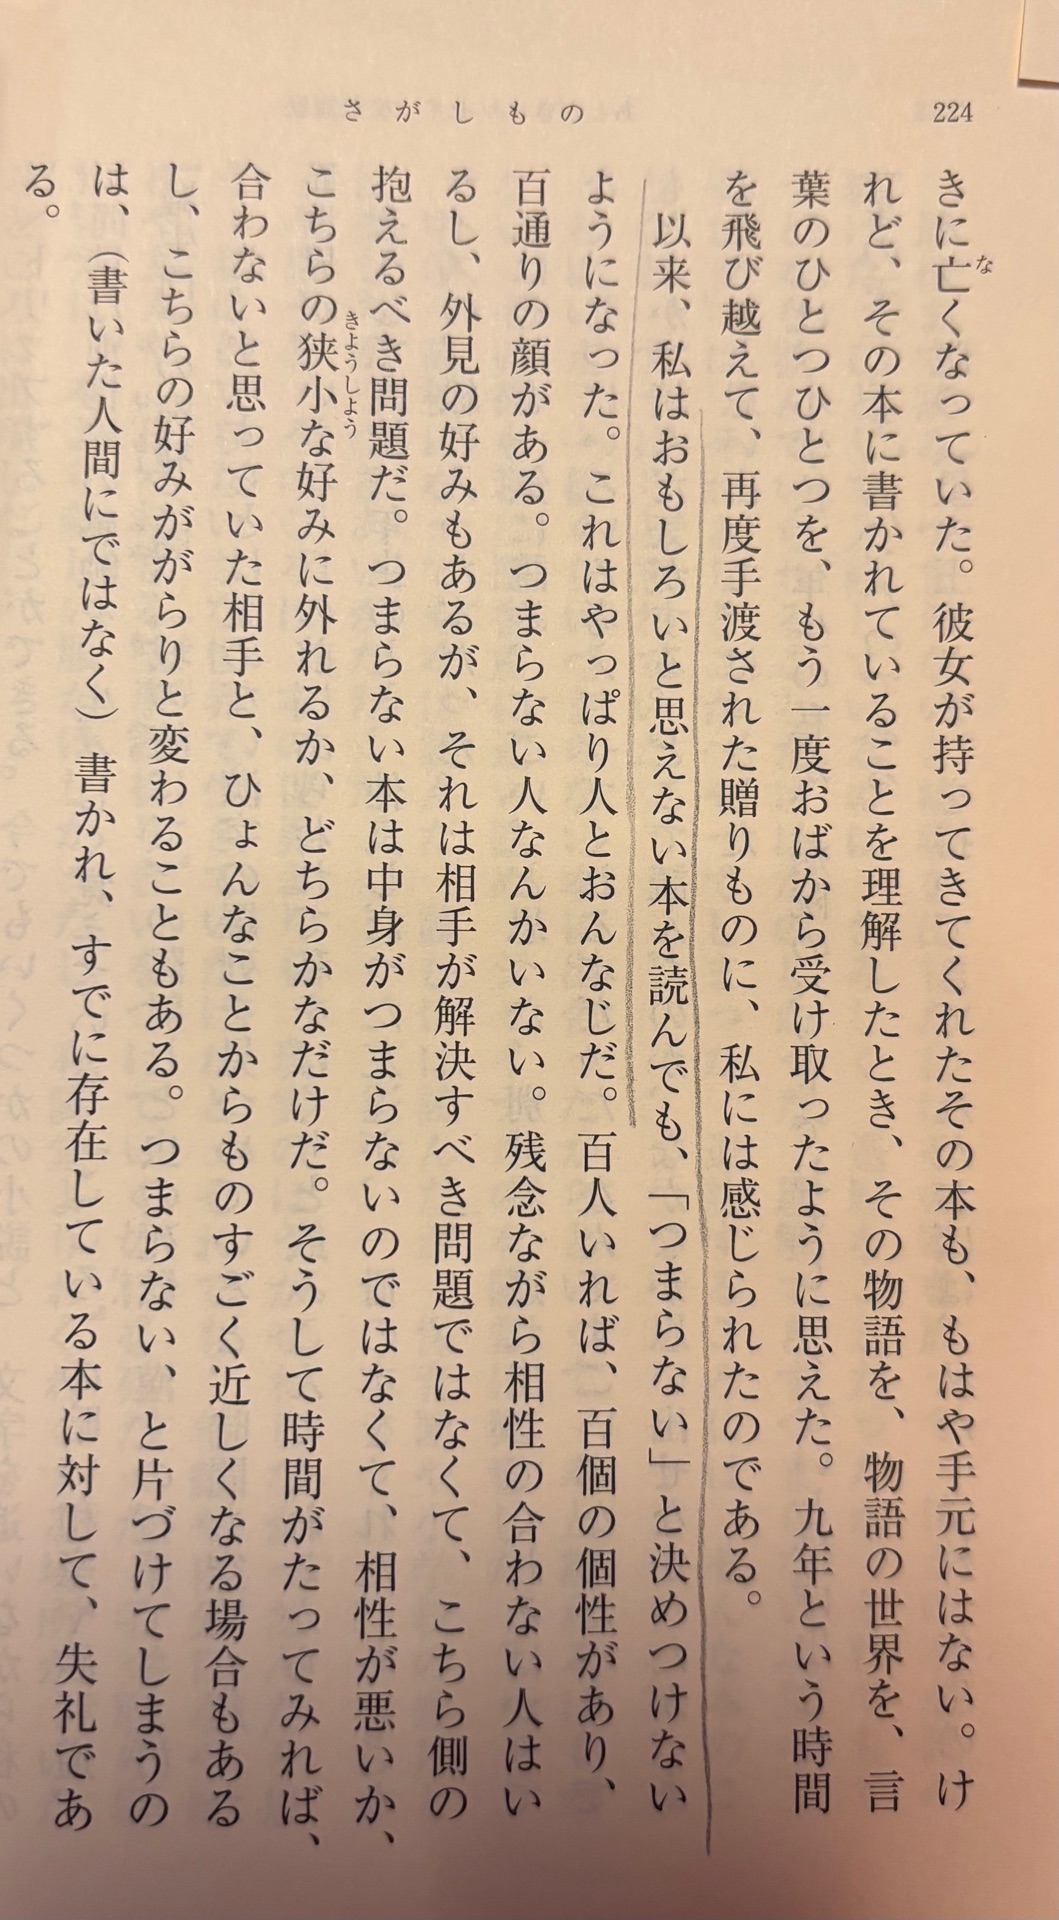 224
さがしもの
きに亡くなっていた。彼女が持ってきてくれたその本も、もはや手元にはない。け
な
れど、その本に書かれていることを理解したとき、その物語を、物語の世界を、言
葉のひとつひとつを、もう一度おばから受け取ったように思えた。九年という時間
を飛び越えて、再度手渡された贈りものに、私には感じられたのである。
以来、私はおもしろいと思えない本を読んでも、「つまらない」と決めつけない
ようになった。これはやっぱり人とおんなじだ。百人いれば、百個の個性があり、
百通りの顔がある。つまらない人なんかいない。残念ながら相性の合わない人はい
るし、外見の好みもあるが、それは相手が解決すべき問題ではなくて、こちら側の
抱えるべき問題だ。つまらない本は中身がつまらないのではなくて、相性が悪いか、
こちらの狭小な好みに外れるか、どちらかなだけだ。そうして時間がたってみれば、
きようしよう
合わないと思っていた相手と、ひょんなことからものすごく近しくなる場合もある
し、こちらの好みががらりと変わることもある。つまらない、と片づけてしまうの
は、（書いた人間にではなく）書かれ、すでに存在している本に対して、失礼であ
る。